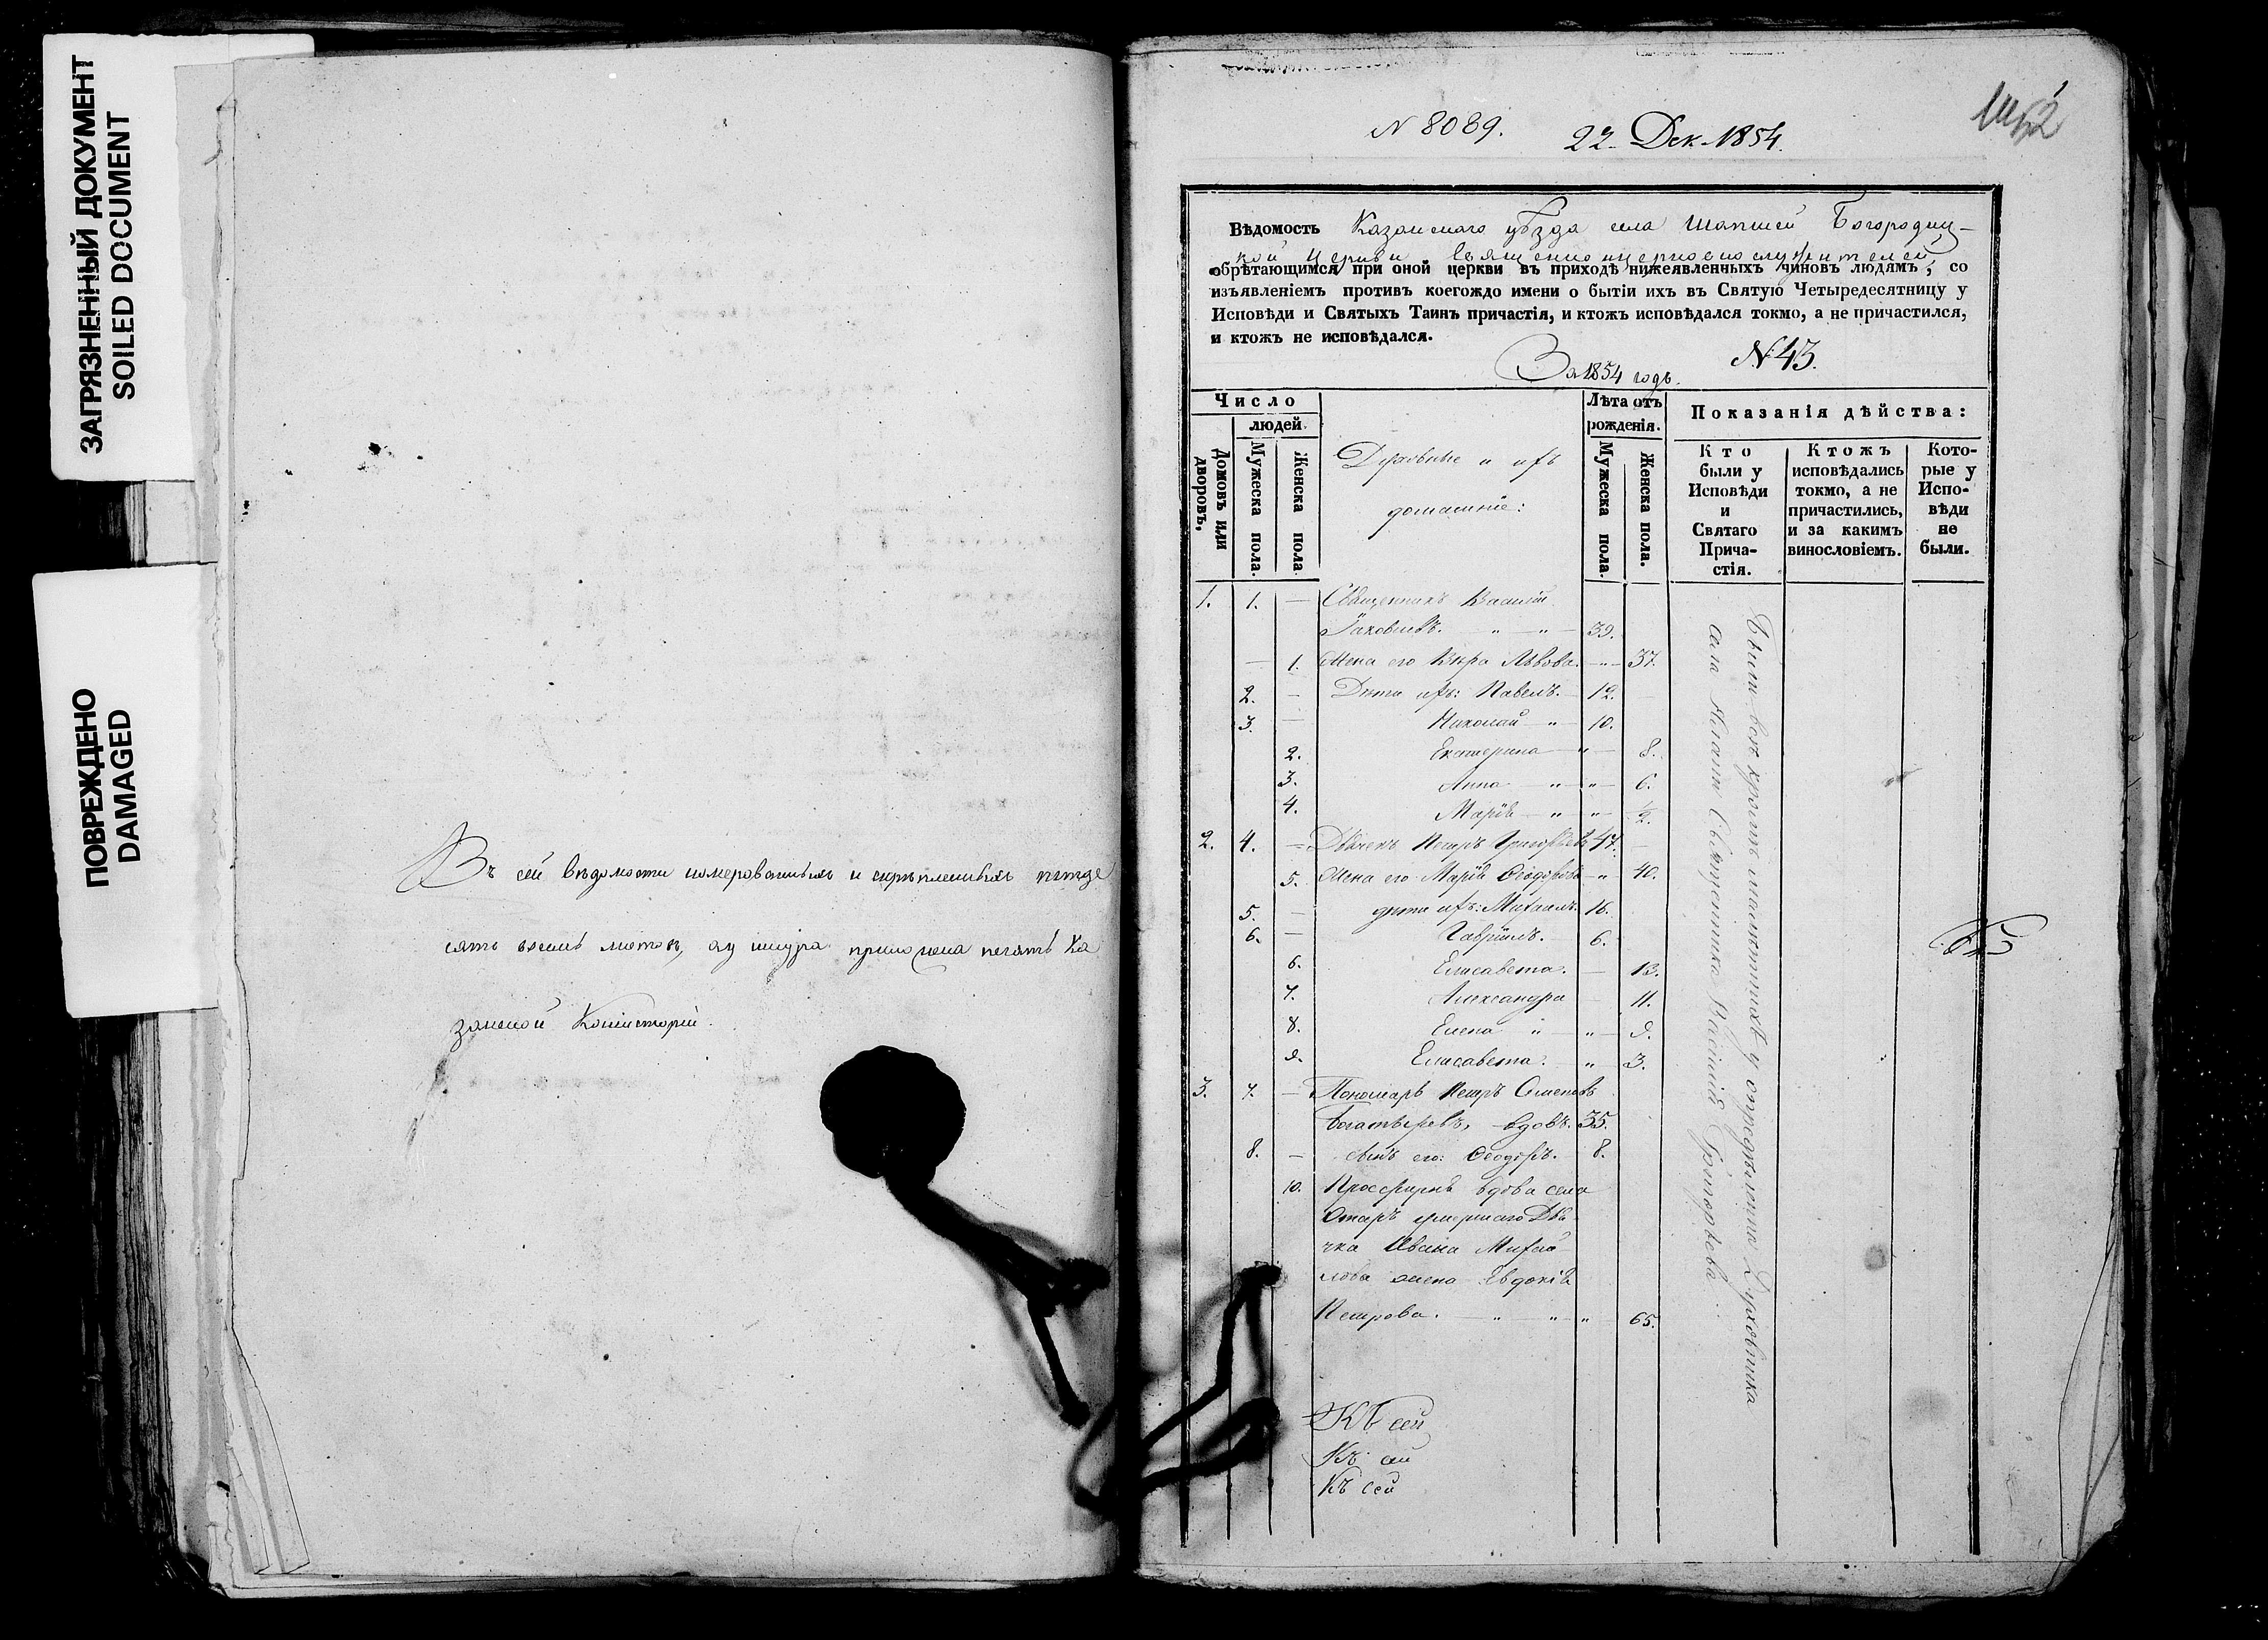 ЗАГРЯЗНЕННЫЙ ДОКУМЕНТ
SOILED DOCUMENT
ПОВРЕЖДЕНО
DAMAGED
Въ сей вѣдомости номерованныхъ и скрѣпленныхъ пятьде
сятъ восемь листовъ, ау шнура приложена печать Ка
занской Консисторіи.
N 8089. 22 Дек. 1854.
Вѣдомость Казанскаго уѣзда села Шапшей Богородиц-
кой Церкви священноцерковнослужителей
обрѣтающимся при оной церкви въ приходѣ нижеявленныхъ чиновъ людямъ, со
изъявленіемъ противъ коегождо имени о бытіи ихъ въ Святую Четыредесятницу у
Исповѣди и Святыхъ Таинъ причастія, и ктожъ исповѣдался токмо, а не причастился,
и ктожъ не исповѣдался.
N. 43.
За 1854 годъ.
Число
людей
Домовъ или дворовъ.
Мужеска пола.
Женска пола
Духовные и ихъ
домашніе:
Лѣта отъ
рожденія.
Мужеска пола.
Женска пола.
Показанія дѣйства:
Кто
были у
Исповѣди
и
Святаго
Прича-
стія.
Ктожъ
исповѣдались
токмо, а не
причастились,
и за какимъ
винословіемъ.
Кото-
рые у
Испо-
вѣди
не
были.
1. 1. — Священникъ Василій
Яковлевъ. — " — " — 39.
— 1. Жена его Вѣра Львова. — " — 37.
2. — Дѣти ихъ: Павелъ. — 12. —
3. — Николай — " — 10.
2. Екатерина — " — 8.
3. Анна — " — " — 6.
4. Марія — " — " — 1/2.
2. 4. — Дьячекъ Петръ Григорьевъ 47. —
5. Жена его Марія Ѳеодорова — " — 40.
5. — дѣти ихъ: Михаилъ. 16.
6. — Гавріилъ. — 6.
6. Елисавета. — 13.
7. Александра — 11.
8. Елена " — " — 9.
9. Елисавета. — " — 3.
3. 7. — Пономарь Петръ Семеновъ
Богатыревъ, вдовъ. 35.
8. — сынъ его: Ѳеодоръ. — 8.
10. Просфирня вдова села
Отаръ умершаго Дья-
чка Ивана Михай-
лова жена Евдокія
Петрова. — " — " — " — 65.
Были всѣ кромѣ малолѣтнихъ у опредѣленнаго Духовника
села Священника Василія Григорьева.
Къ сей
Къ сей
Къ сей